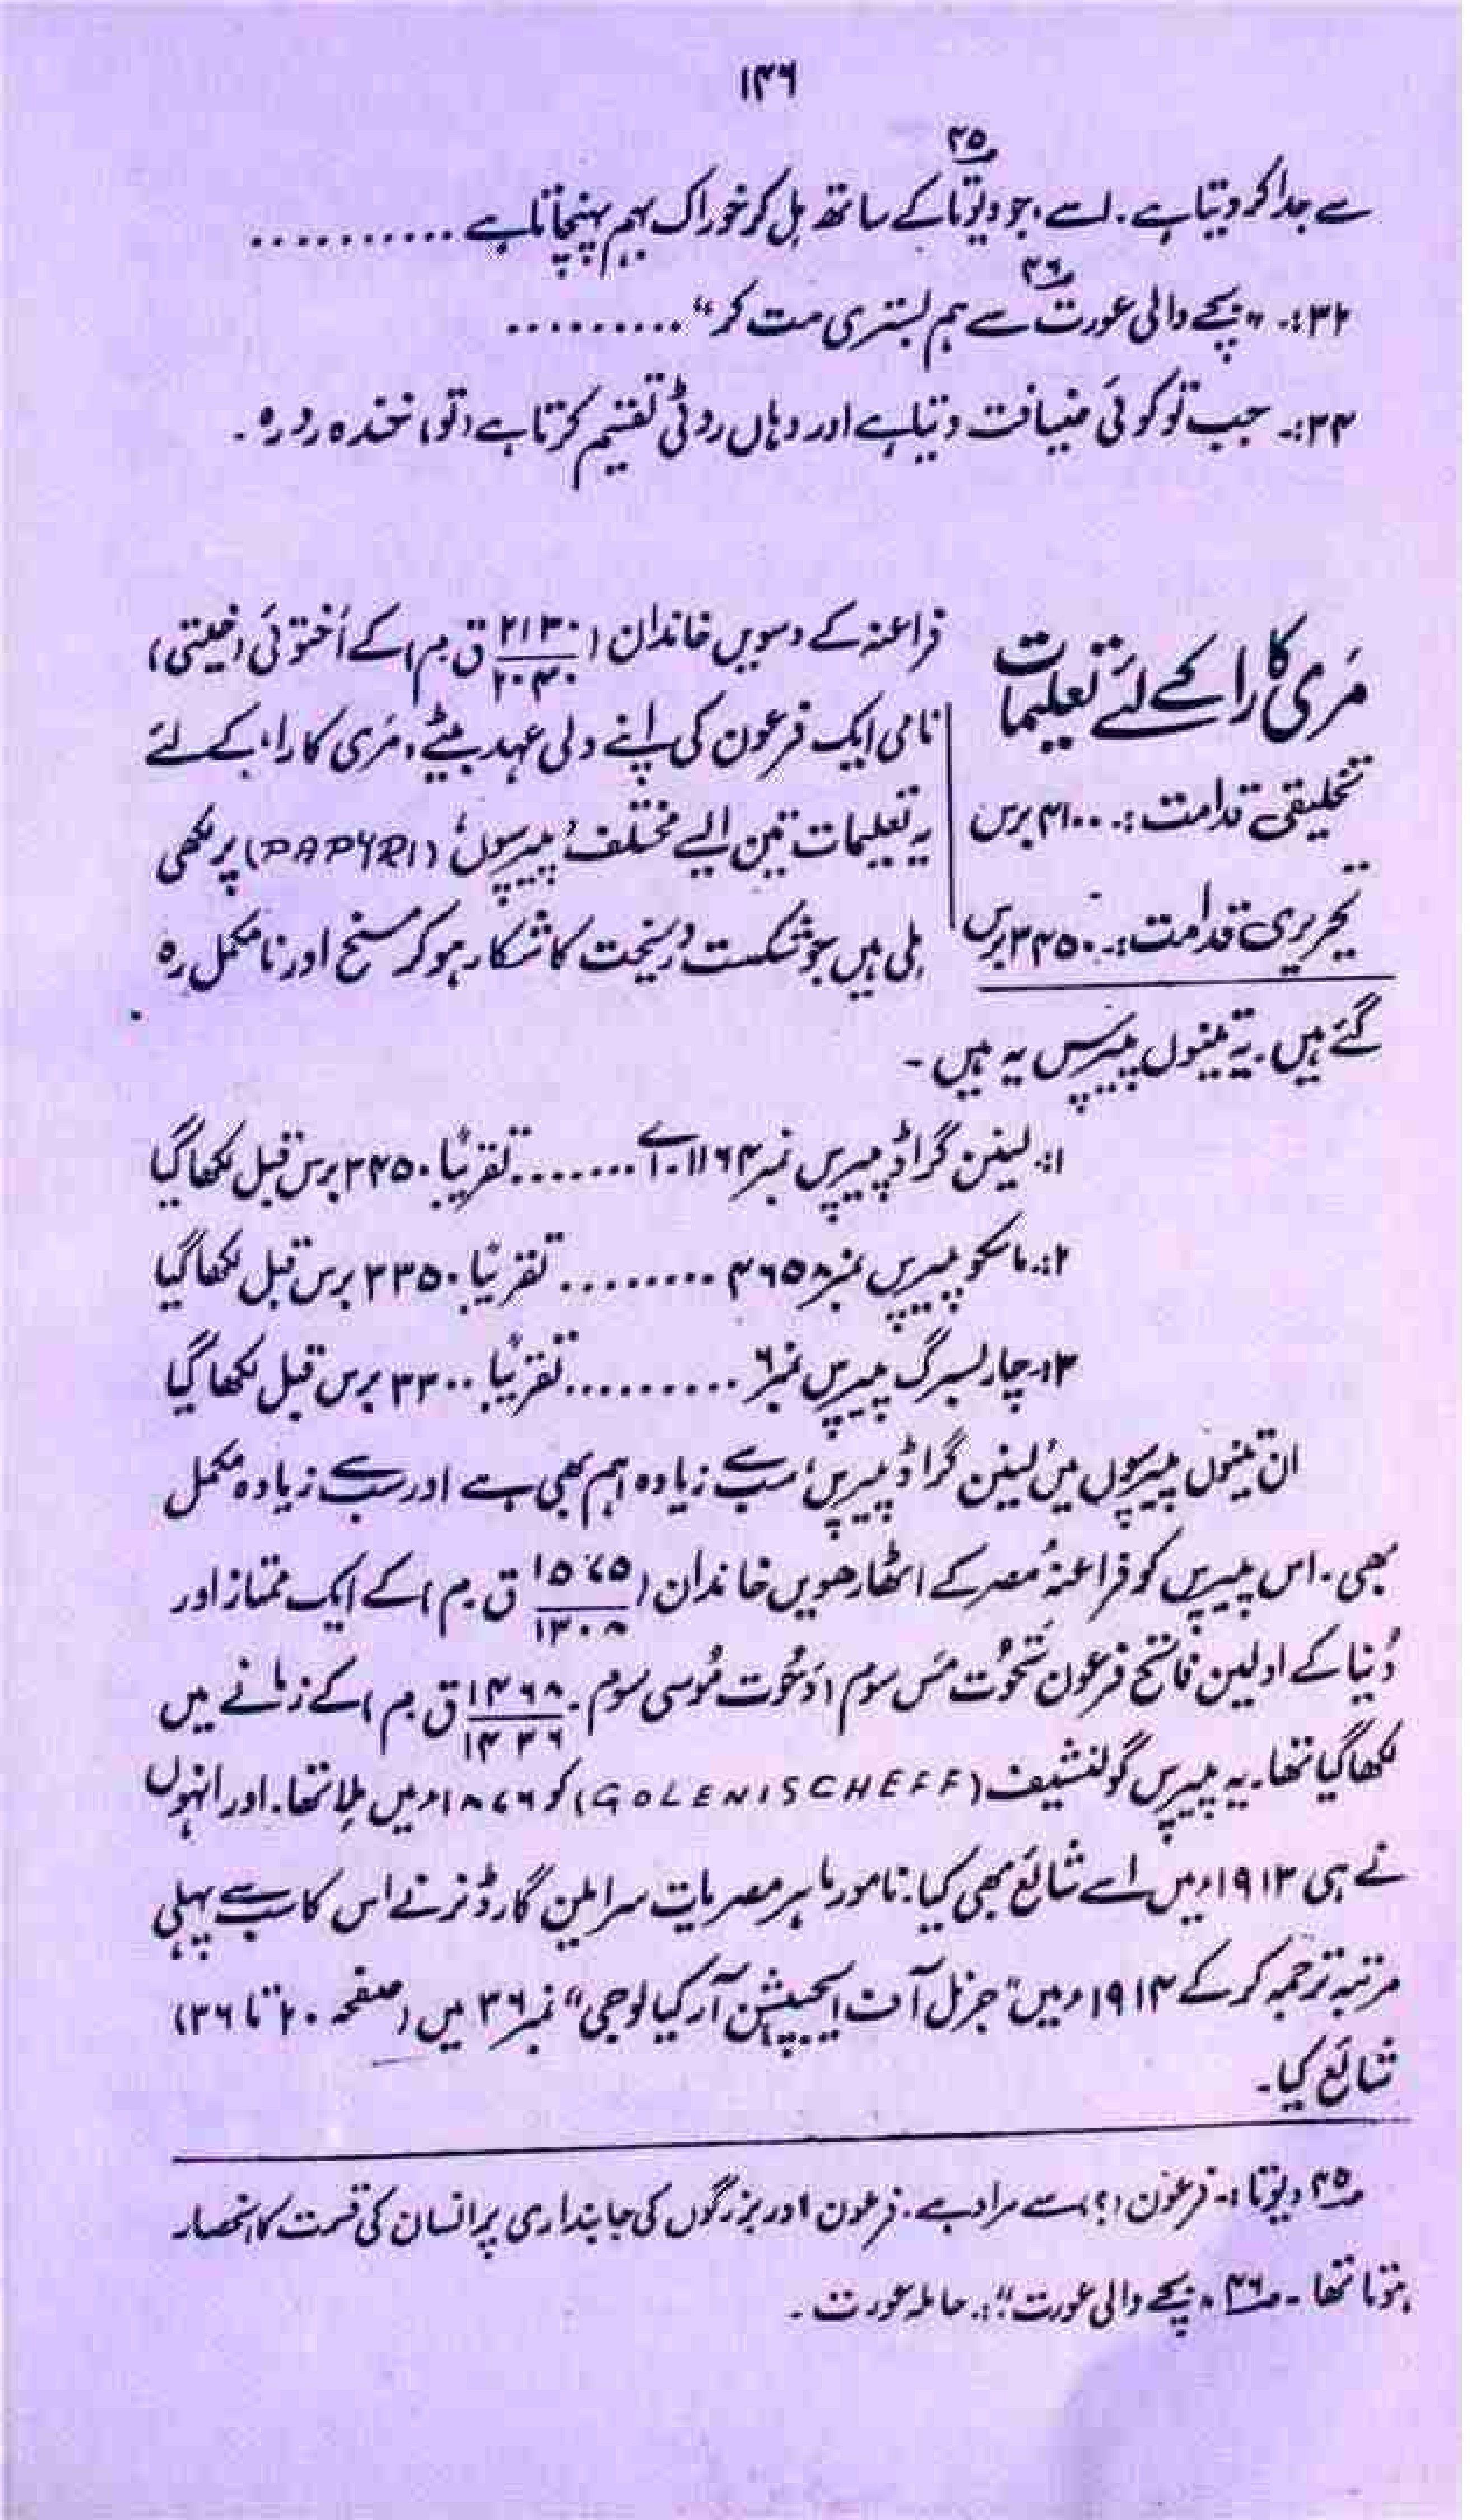 ۱۴۶
سے جدا کر دیتا ہے۔ اسے، جو دیوتا۴۵ کے ساتھ مل کر خوراک بہم پہنچاتا ہے ...........
۳۲:۔ ”بچے والی عورت۴۶ سے ہم بستری مت کر“ ..........
۳۳:۔ جب تو کوئی ضیافت دیتا ہے اور وہاں روٹی تقسیم کرتا ہے (تو) خندہ رو رہ۔
مَری کا را کے لئے تعلیمات
تخلیقی قدامت:۔ ۴۱۰۰ برس
تحریری قدامت:۔ ۳۴۵۰ برس
فراعنہ کے دسویں خاندان (۲۱۳۰/۲۰۴۰ ق۔م) کے اَختوئی (خیتی)
نامی ایک فرعون کی اپنے ولی عہد بیٹے، مَری کا را، کے لئے
یہ تعلیمات تین ایسے مختلف ’پیپرسوں‘ (PAPYRI) پر لکھی
ملی ہیں جو شکست و ریخت کا شکار ہو کر مسخ اور نامکمل رہ
گئے ہیں۔ یہ تینوں پیپرس یہ ہیں۔
۱:۔ لینن گراڈ پیپرس نمبر ۱۱۶۴۔اے ....... تقریباً ۳۴۵۰ برس قبل لکھا گیا
۲:۔ ماسکو پیپرس نمبر ۴۶۵۸ ........ تقریباً ۳۳۵۰ برس قبل لکھا گیا
۳:۔ چارلسبرگ پیپرس نمبر ۶ ......... تقریباً ۳۳۰۰ برس قبل لکھا گیا
ان تینوں پیپرسوں میں ’لینن گراڈ پیپرس‘ سب سے زیادہ اہم بھی ہے اور سب سے زیادہ مکمل
بھی۔ اس پیپرس کو فراعنۂ مصر کے اٹھارھویں خاندان (۱۵۷۵/۱۳۰۸ ق۔م) کے ایک ممتاز اور
دُنیا کے اولین فاتح فرعون تَحُوت مَس سوم (دَحُوت مُوسی سوم۔ ۱۴۶۸/۱۴۳۶ ق۔م) کے زمانے میں
لکھا گیا تھا۔ یہ پیپرس گولنشیف (GOLENISCHEFF) کو ۱۸۷۶ء میں ملا تھا۔ اور انہوں
نے ہی ۱۹۱۳ء میں اسے شائع بھی کیا۔ نامور ماہر مصریات سر ایلن گارڈنر نے اس کا سب سے پہلی
مرتبہ ترجمہ کر کے ۱۹۱۴ء میں ”جرنل آف ایجپشن آرکیالوجی“ نمبر ۳۶ میں (صفحہ ۲۰ تا ۳۶)
شائع کیا۔
۴۵ دیوتا:۔ فرعون (؟) سے مراد ہے۔ فرعون اور بزرگوں کی جانبداری پر انسان کی قسمت کا انحصار
ہوتا تھا۔ ۴۶ ”بچے والی عورت“:۔ حاملہ عورت۔